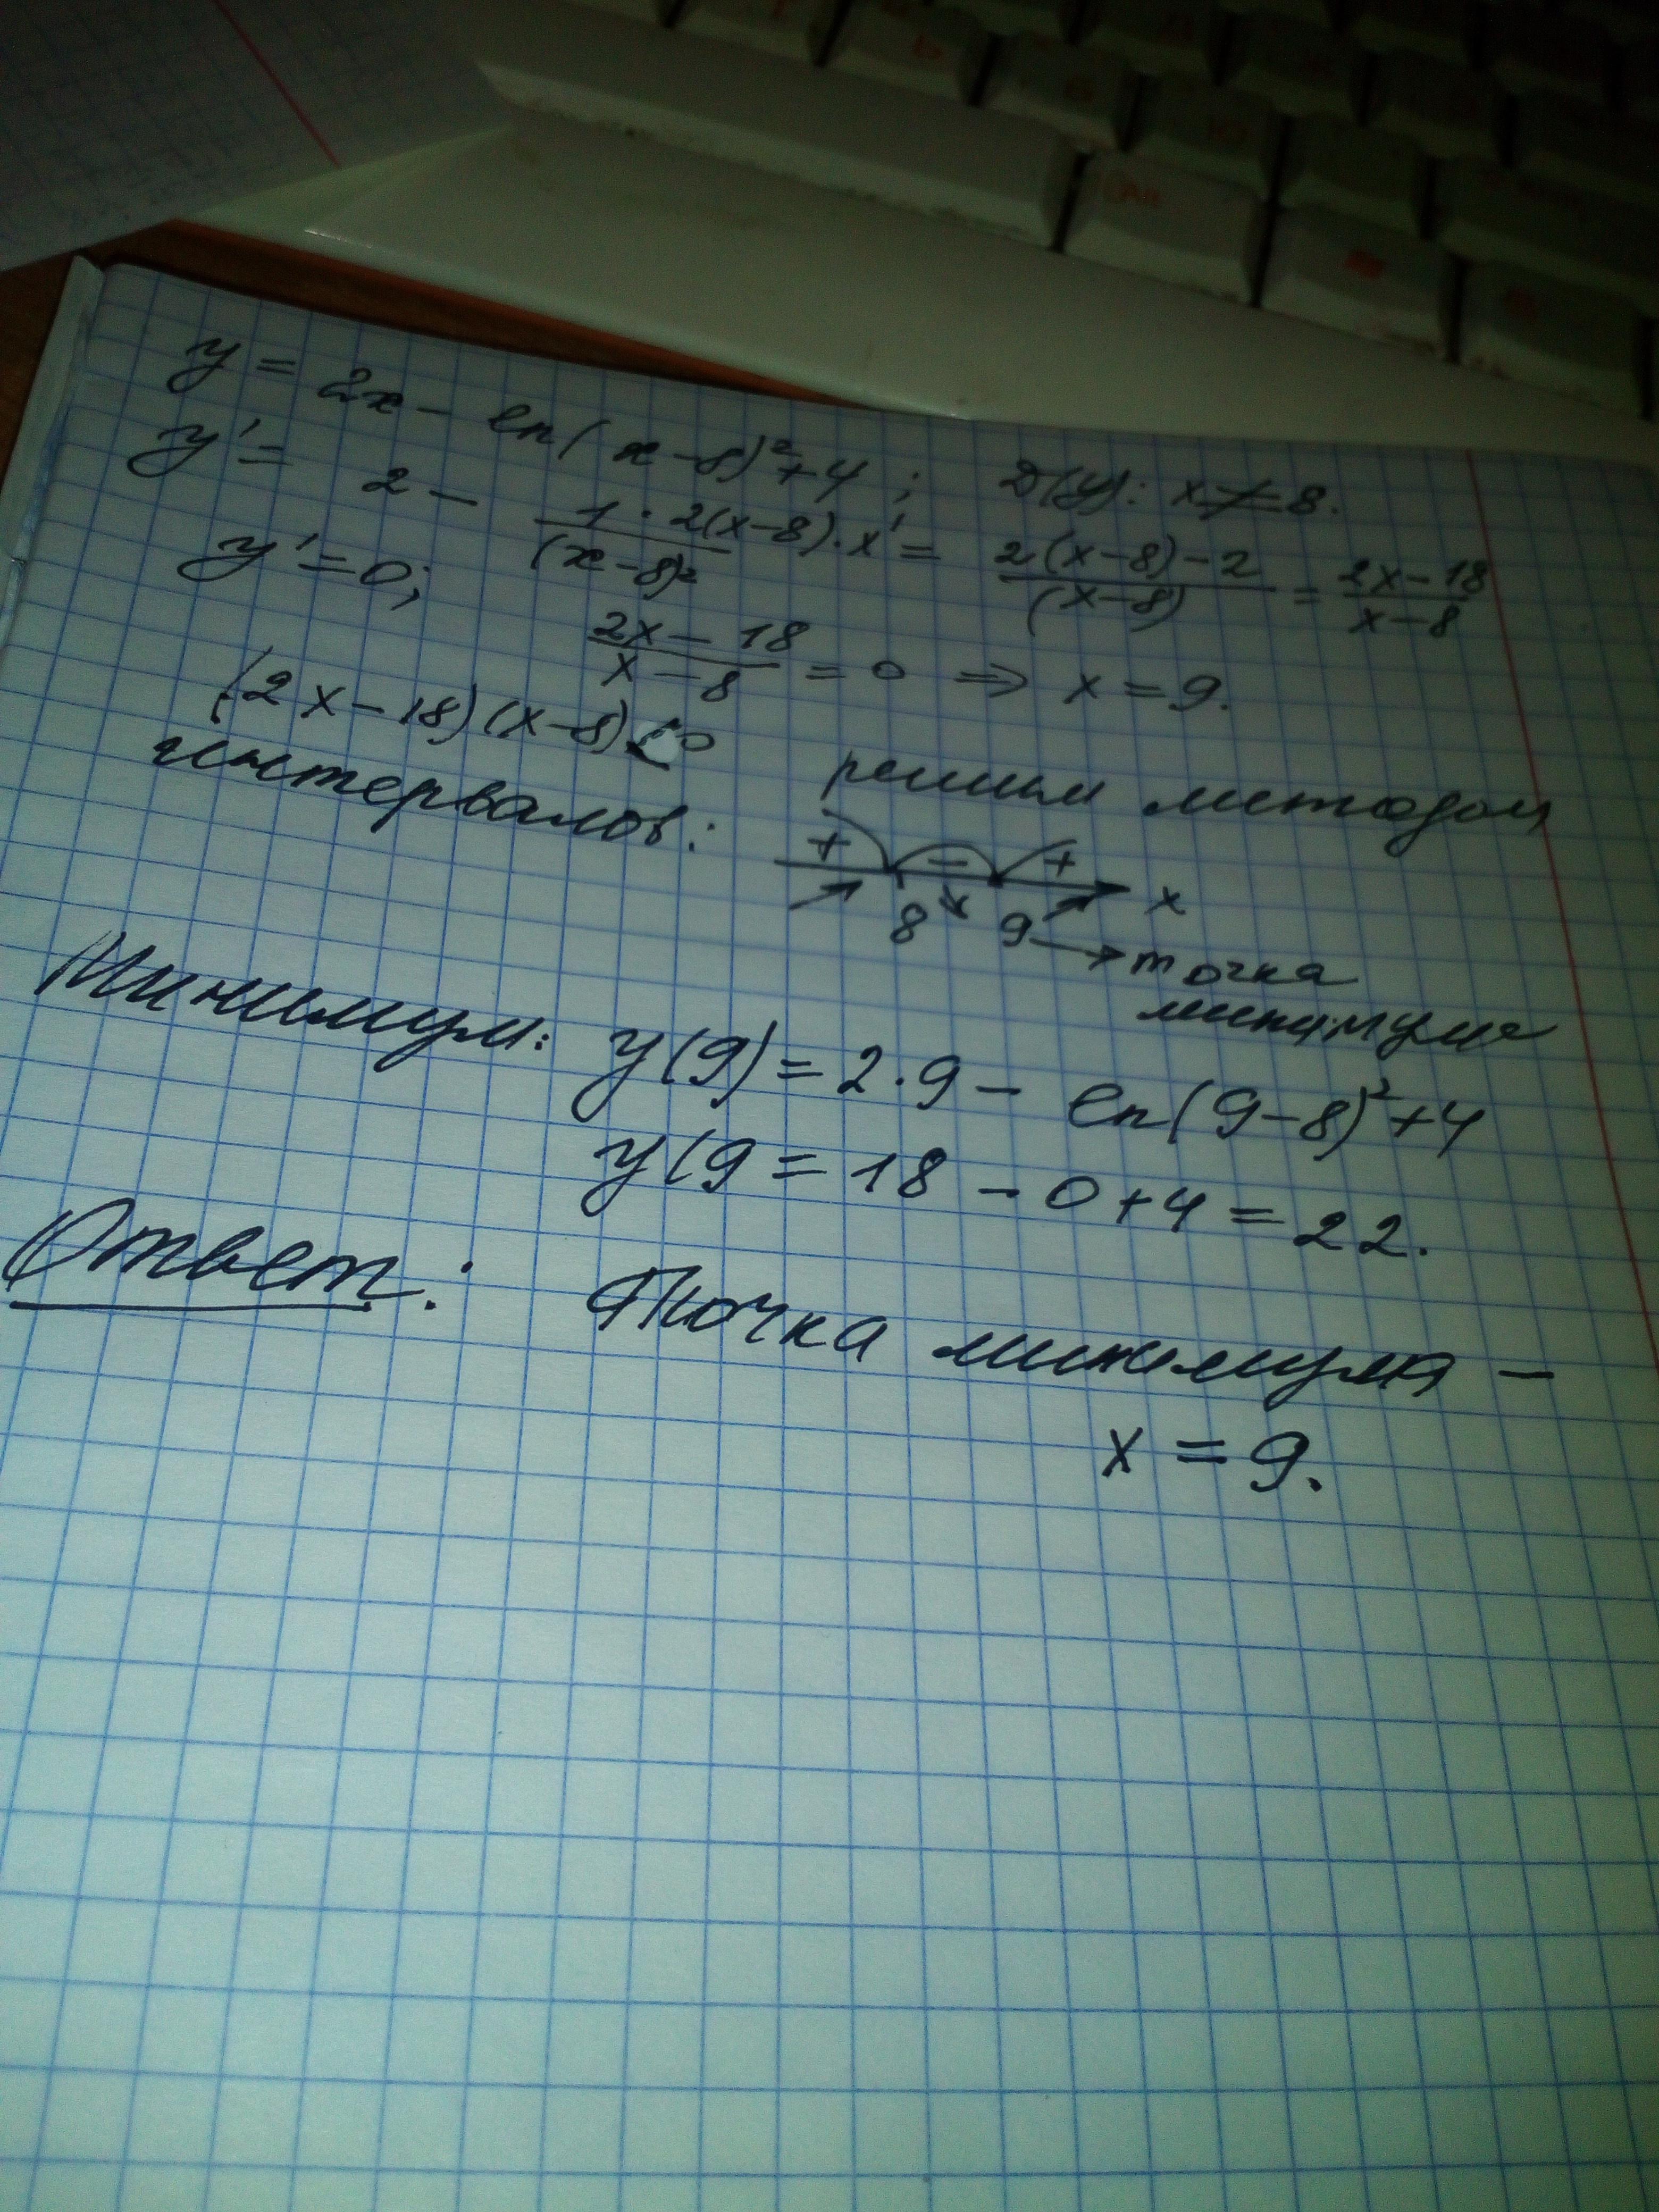 y = 2x - ln(x-8)²+4; D(y): x≠8.
y' = 2 - 1·2(x-8)·x' / (x-8)² = 2(x-8)-2 / (x-8) = 2x-18 / x-8
y'=0; 2x-18 / x-8 = 0 ⇒ x=9.
(2x-18)(x-8) решим методом
интервалов: + - + x
8 9 → точка
минимума
Минимум: y(9) = 2·9 - ln(9-8)²+4
y(9 = 18 - 0+4 = 22.
Ответ: Точка минимума -
x = 9.